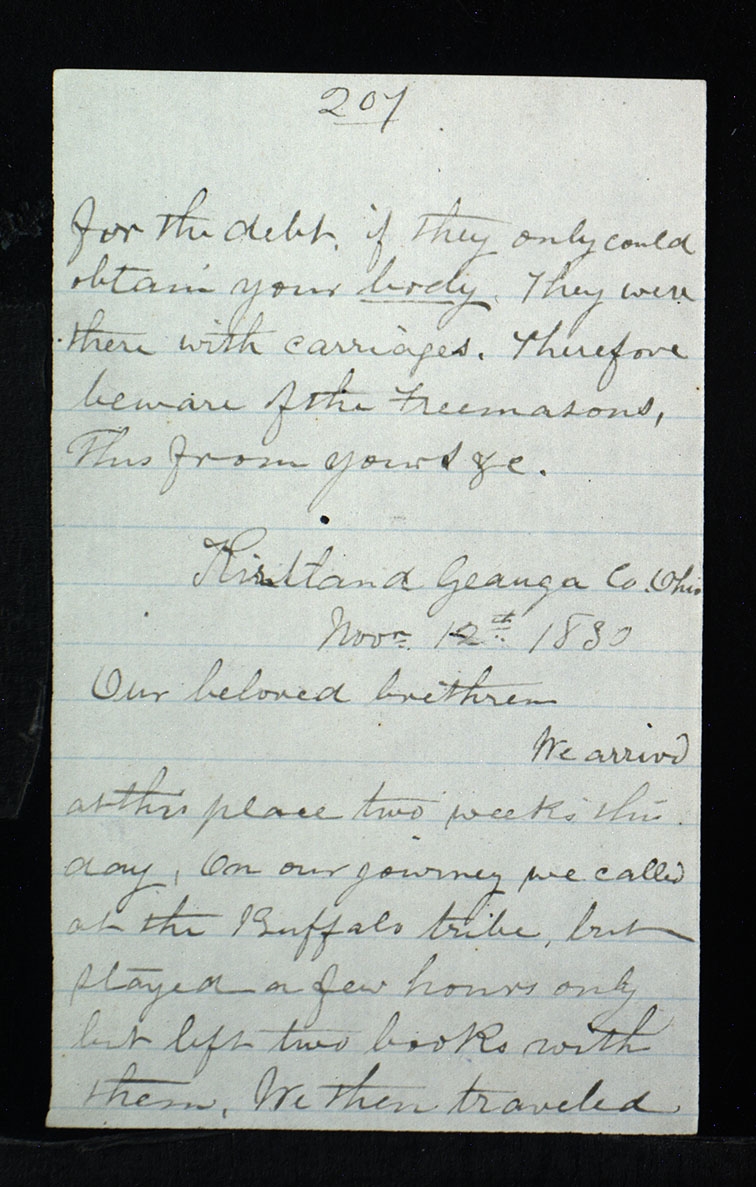 207
for the debt, if they only could
obtain your body. They were
there with carriages. Therefore
beware of the Freemasons,
This from yours &c.
Kirtland Geauga Co. Ohio
Novr. 12th. 1830
Our beloved brethren
We arrivd
at this place two weeks this
day, On our journey we called
at the Buffalo tribe, but
stayed a few hours only
but left two books with
them, We then traveled